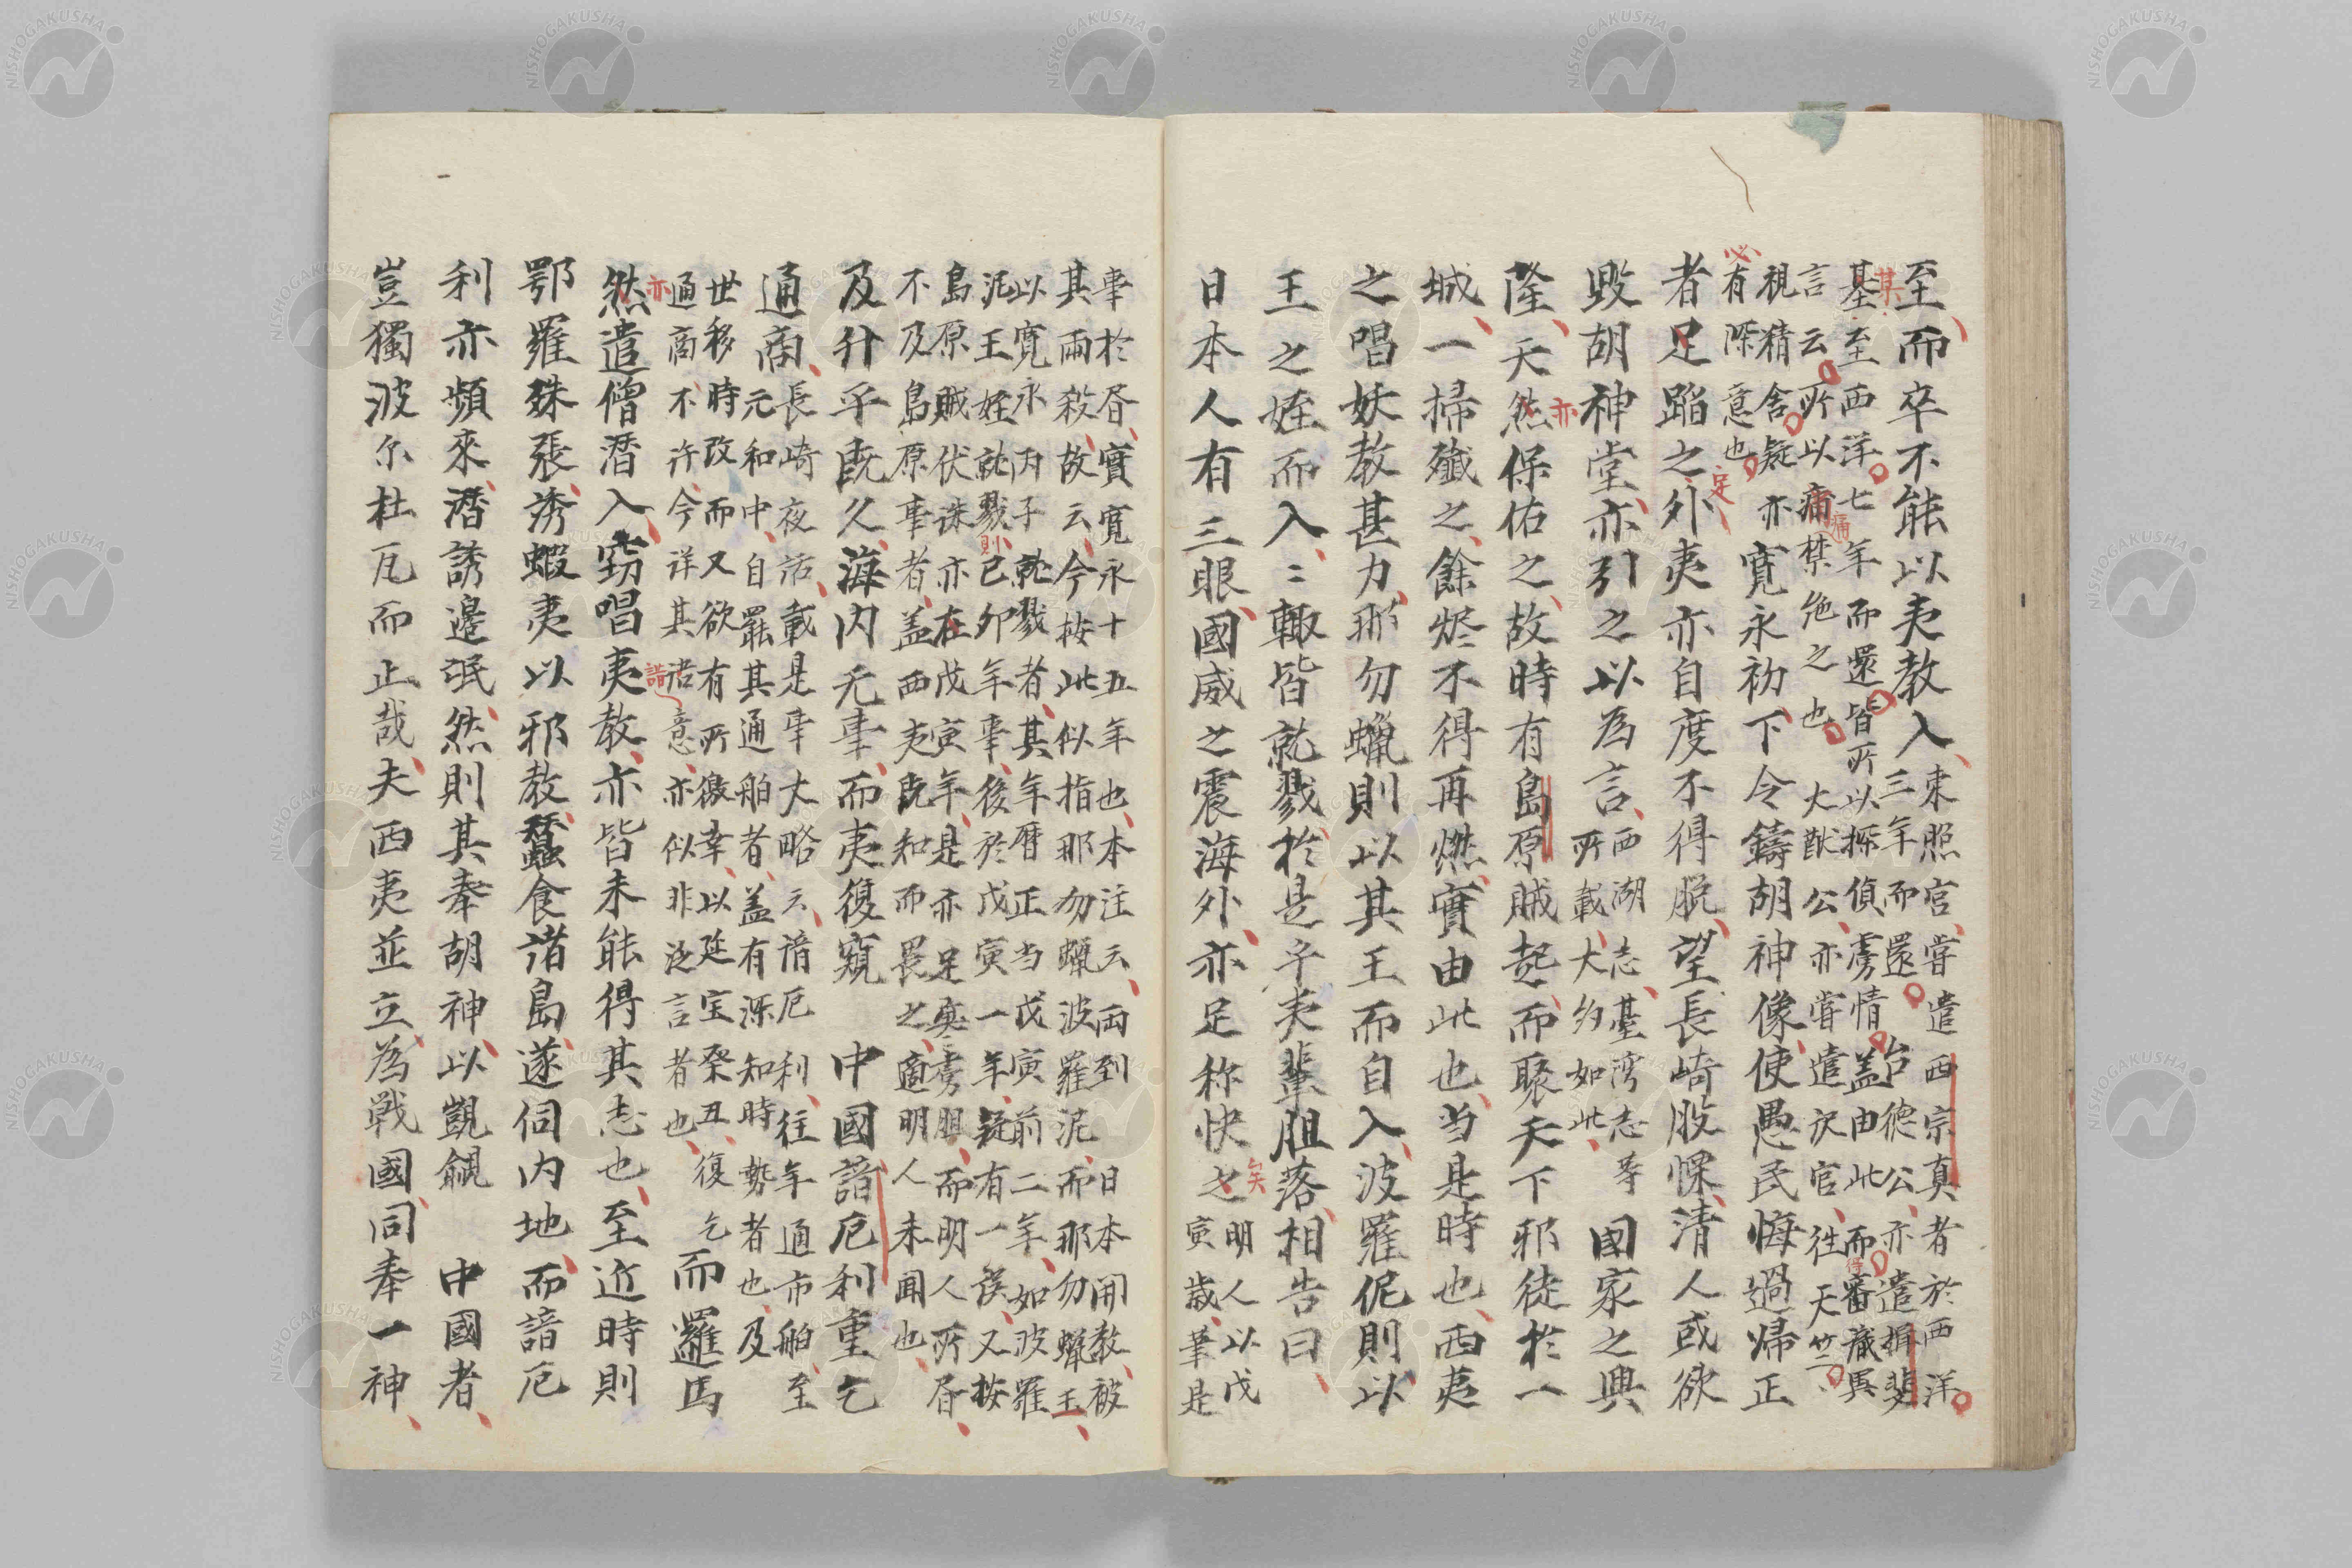 至而卒不能以夷教入東照宮嘗遣西宗真者於西洋
三年而還台德公亦遣揖斐
基至西洋七年而還皆所以探偵虜情蓋由此而審蔵異
言云所以痛禁絶之也大猷公亦嘗遣沢官往天竺
視精舎疑亦
有深意也寛永初下令鑄胡神像使愚民悔過帰正
者足蹈之外夷亦自度不得脱望長崎股慄清人或欲
毀胡神堂亦引之以為言西湖志臺湾志等
所載大約如此国家之興
隆天然保佑之故時有島原賊起而聚天下邪徒於一
城一掃殲之餘燼不得再燃實由此也当是時也西夷
之唱妖教甚力那勿蠟則以其王而自入波羅伲則以
王之姪而入々輙皆就戮於是乎夷輩胆落相告曰
日本人有三眼國威之震海外亦足称快之明人以戊
寅歳筆是
事於昏實寛永十五年也本注云両到日本開教被
其兩殺故云今按此似指那勿蠟波羅泥而那勿蠟王
以寛永丙子就戮者其年暦正当戊寅前二年如波羅
泥王姪就戮已卯年事後於戊寅一年疑有一誤又按
島原賊伏誅亦在戊寅年是亦足襲虜胆而明人所昏
不及島原事者盖西夷既知而畏之適明人未聞也
及升平既久海内无事而夷復窺中國諳厄利重乞
通商長崎夜話載是事大略云諳厄利往年通市舶至
元和中自罷其通舶者盖有深知時勢者也及
世移時改而又欲有所徼幸以延宝癸丑復乞
通商不許今詳其語意亦似非泛言者也而邏馬
然遣僧潜入竊唱夷教亦皆未能得其志也至近時則
鄂羅殊張誘蝦夷以邪教蠶食諸島遂伺内地而諳厄
利亦頻來潜誘邊氓然則其奉胡神以覬覦中國者
豈獨波尓杜瓦而止哉夫西夷並立為戦國同奉一神